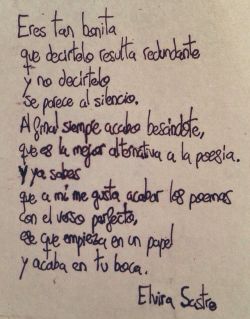 Eres tan bonita
que decirtelo resulta redundante
y no decirtelo
se parece al silencio.
Al final siempre acabo besándote,
que es la mejor alternativa a la poesía.
Y ya sabes
que a mi me gusta acabar los poemas
con el verso perfecto,
ese que empieza en un papel
y acaba en tu boca.
Elvira Sastre